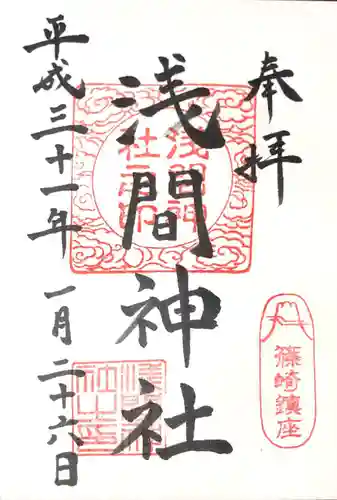 奉拝
篠崎鎮座
浅間神社
浅間神社之印
平成三十一年一月二十六日